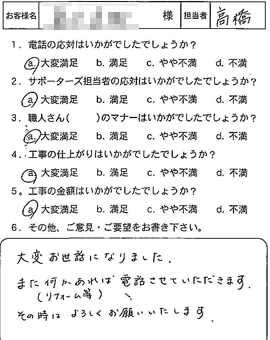 お客様名 様 担当者 高橋
1．電話の応対はいかがでしたでしょうか？
a. 大変満足 b. 満足 c. やや不満 d. 不満
2．サポーターズ担当者の応対はいかがでしたでしょうか？
a. 大変満足 b. 満足 c. やや不満 d. 不満
3．職人さん（　　）のマナーはいかがでしたでしょうか？
a. 大変満足 b. 満足 c. やや不満 d. 不満
4．工事の仕上がりはいかがでしたでしょうか？
a. 大変満足 b. 満足 c. やや不満 d. 不満
5．工事の金額はいかがでしたでしょうか？
a. 大変満足 b. 満足 c. やや不満 d. 不満
6．その他、ご意見・ご要望をお書き下さい。
大変お世話になりました.
また何かあれば電話させていただきます.
(リフォーム等)
その時は よろしくお願いいたします.